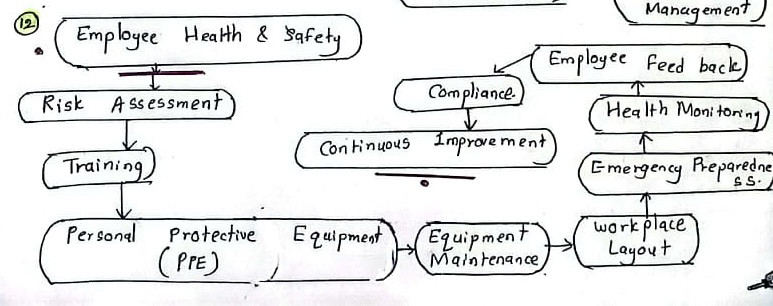 Management
12
Employee Health & Safety
Risk Assessment
Training
Personal Protective Equipment
(PPE)
Equipment
Maintenance
workplace
Layout
Emergency Preparedne
ss.
Health Monitoring
Employee Feed back
Compliance.
Continuous Improvement